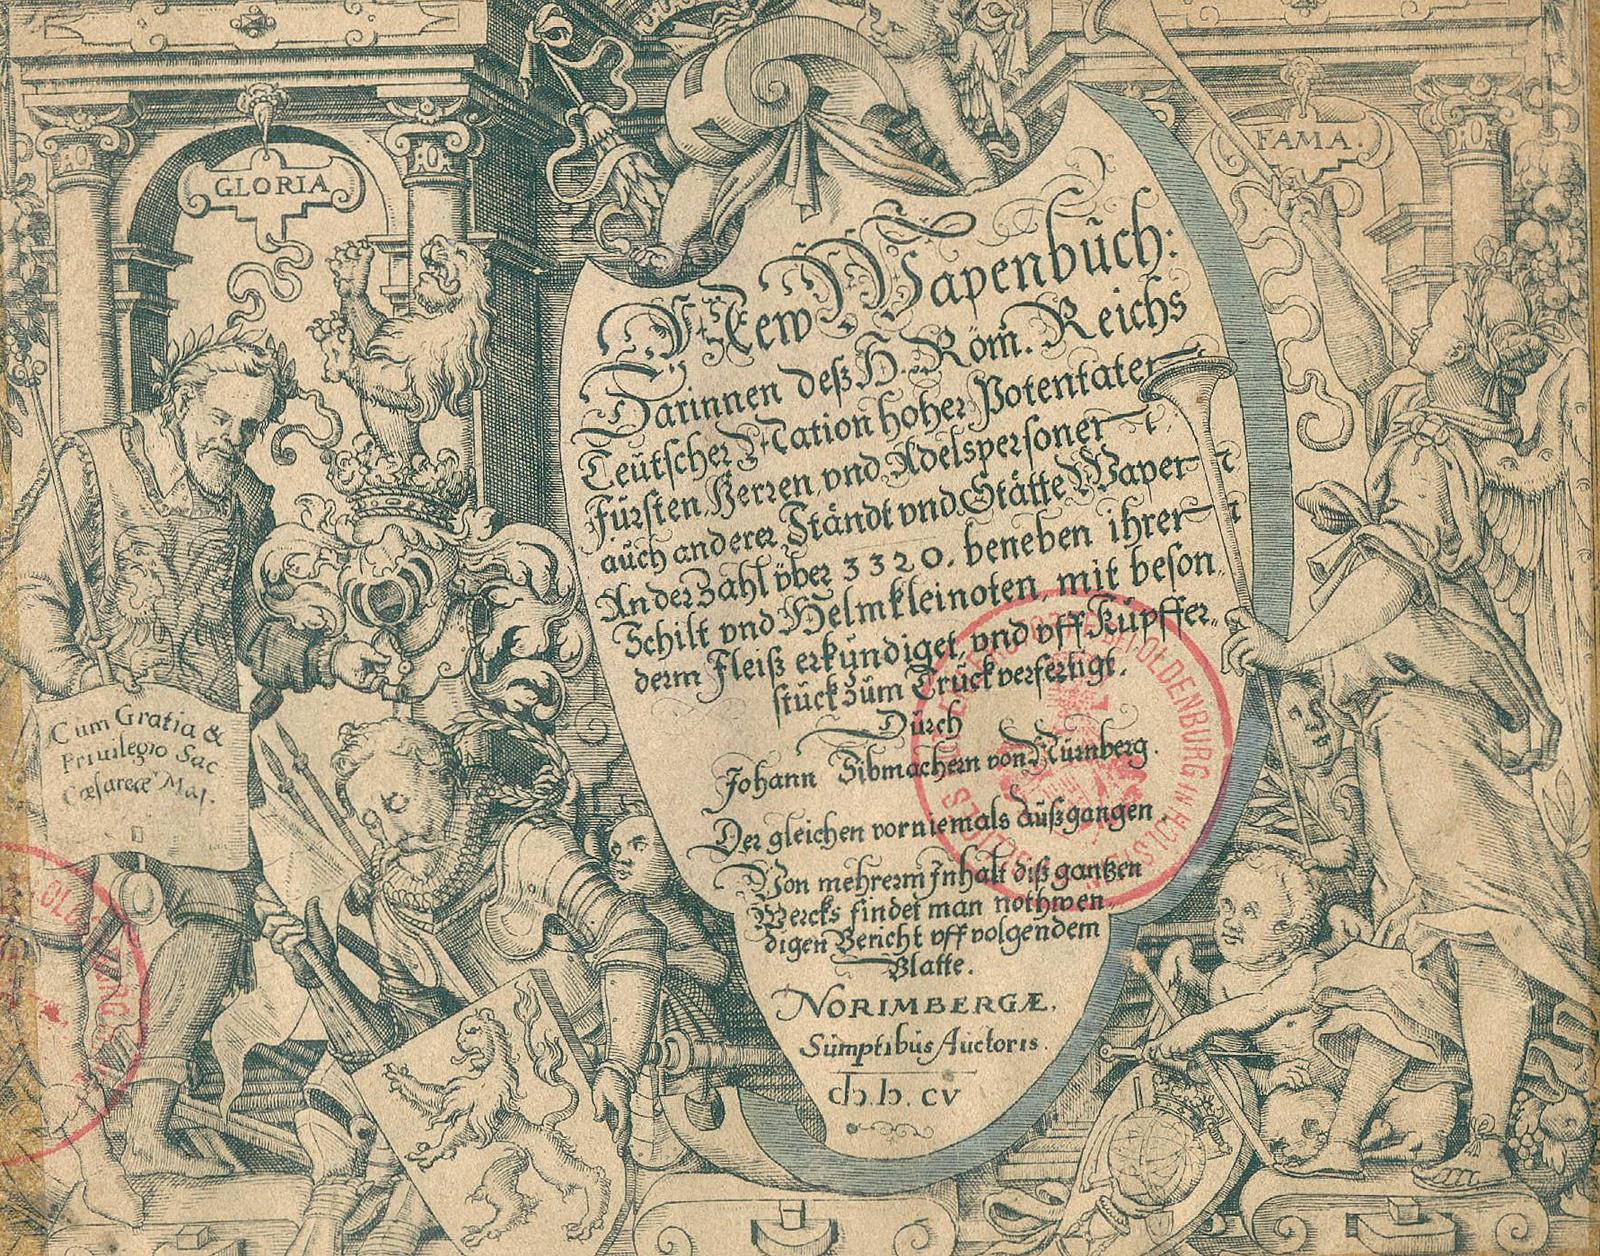 GLORIA
FAMA.
New Wapenbuch:
Darinnen deß H. Röm. Reichs
Teutscher Nation hoher Potentaten
Fürsten, Herren, vnd Adelspersonen
auch anderer Ständt vnd Stätte Wapen
An der Zahl über 3320. beneben ihren
Schilt vnd Helmkleinoten, mit beson
derm Fleiß erkündiget, vnd vff Kupffer„
stück zum Truck verfertigt.
Durch
Johann Sibmachern von Nürnberg.
Der gleichen vor niemals außgangen
Von mehrerm Inhalt diß gantzen
Wercks findet man nothwen„
digen Bericht vff volgendem
Blatte.
NORIMBERGÆ,
Sumptibus Auctoris.
cIɔ.Iɔ.CV
Cum Gratia &
Priuilegio Sac
Cæsareæ Maj.
OLDENBURG IN HOLST